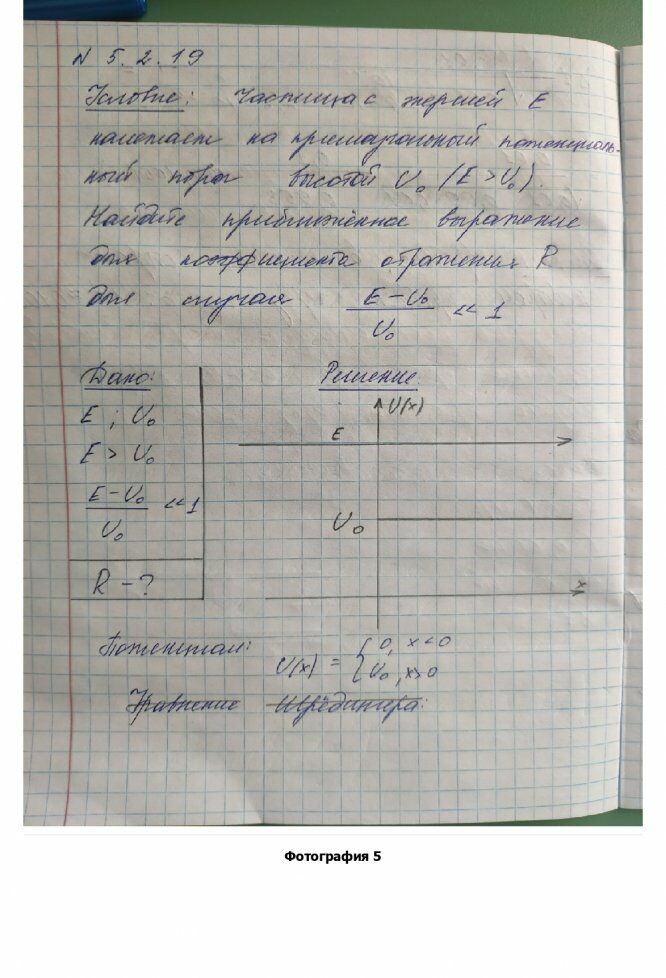 N 5.2.19
Условие: Частица с энергией E
налетает на прямоугольный потенциаль-
ный порог высотой U₀ (E > U₀).
Найдите приближённое выражение
для коэффициента отражения R
для случая (E - U₀)/U₀ << 1
Дано:
E ; U₀
E > U₀
(E - U₀)/U₀ << 1
R - ?
Решение
U(x)
E
U₀
x
Потенциал: U(x) = { 0, x < 0
U₀, x > 0
Уравнение Шрёдингера:
Фотография 5